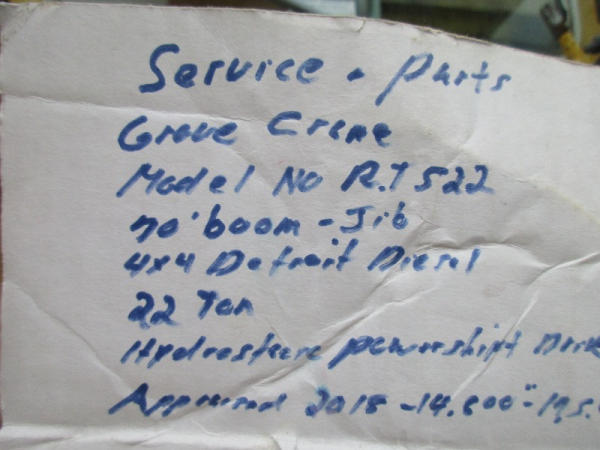 Service. Parts
Grove Crane
Model No R.T 522
70' boom - Jib
4x4 Detroit Diesel
22 Ton
Hydrosteere powershift
Appraised 2018 - 14,800°° - 19,5